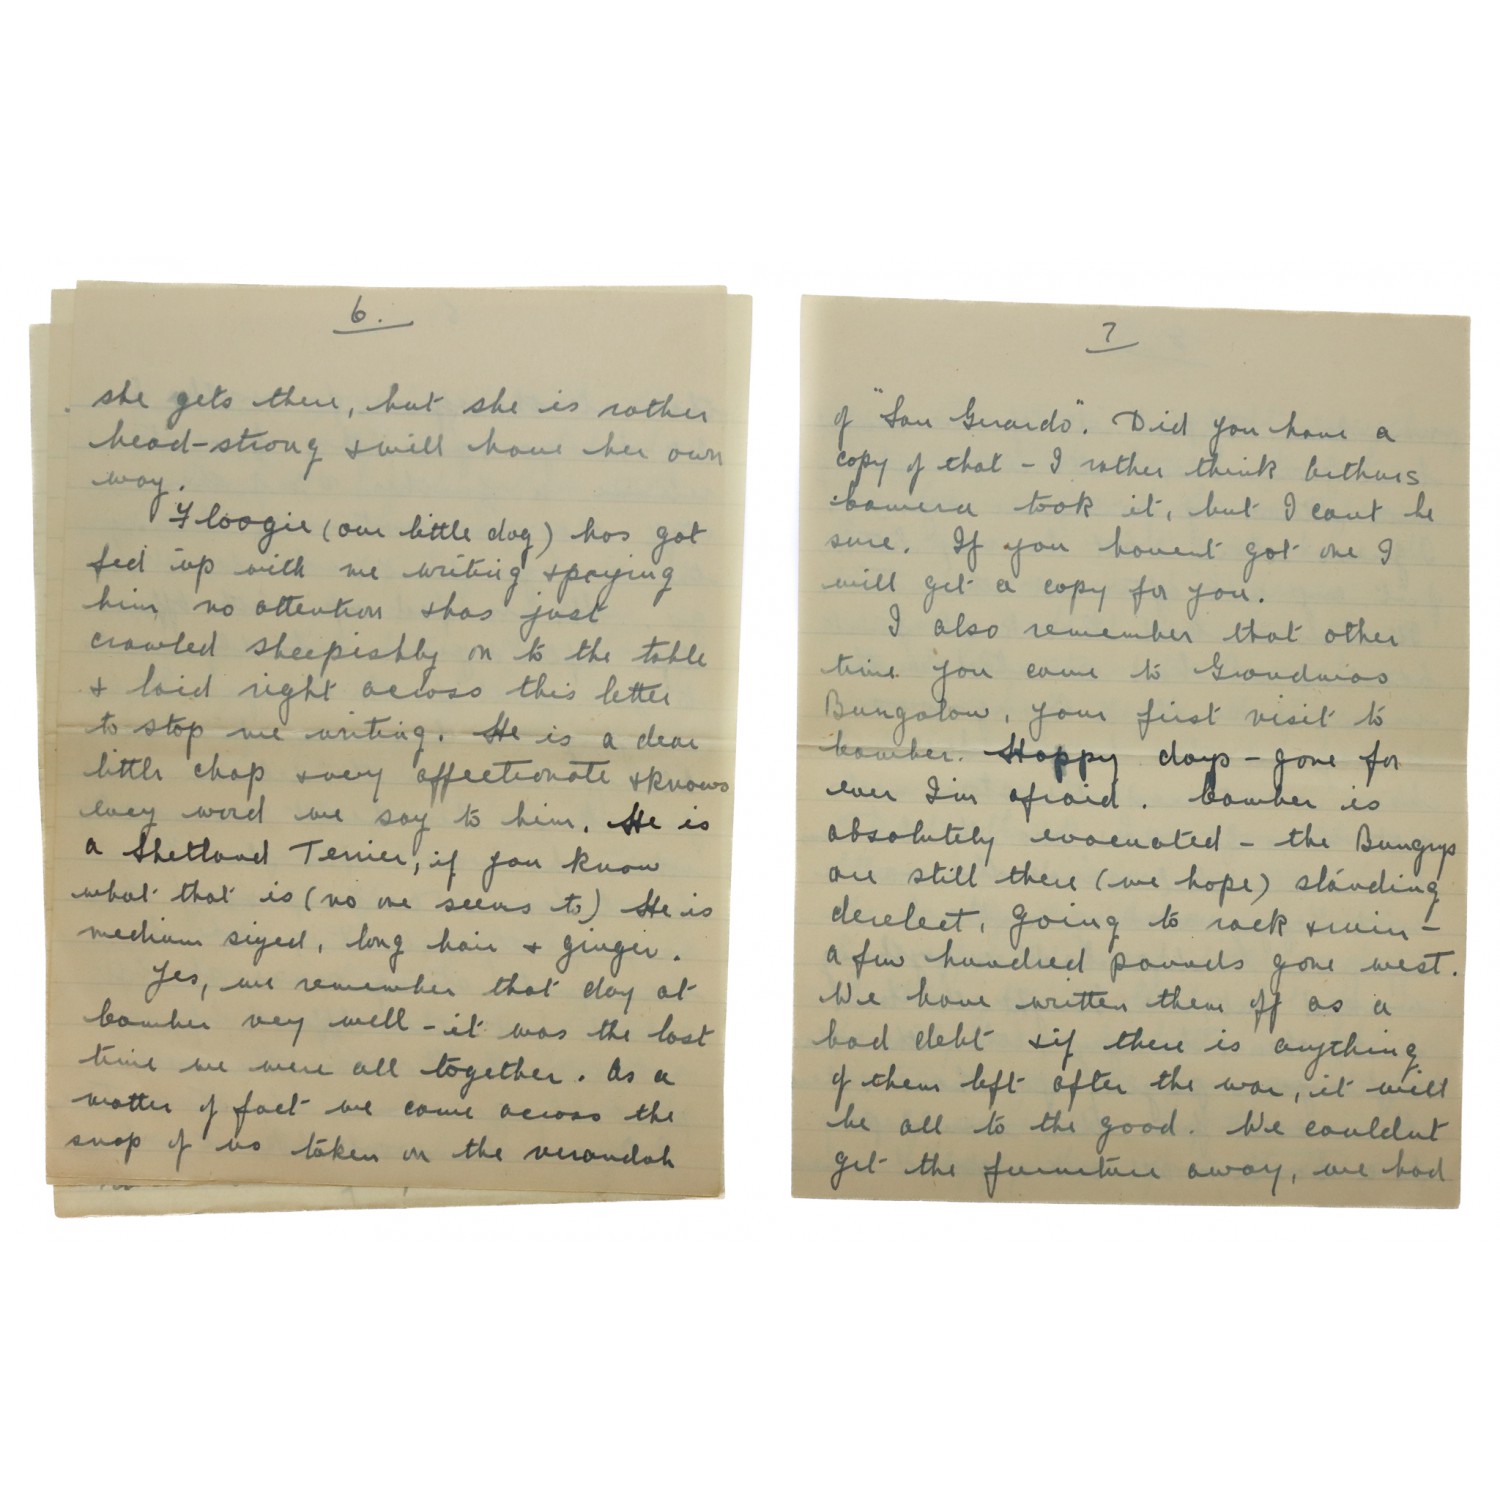 6.
she gets there, but she is rather
head-strong & will have her own
way.
Floogie (our little dog) has got
fed up with me writing & paying
him no attention & has just
crawled sheepishly on to the table
& laid right across this letter
to stop me writing. He is a dear
little chap & very affectionate & knows
every word we say to him. He is
a Shetland Terrier, if you know
what that is (no one seems to) He is
medium sized, long hair & ginger.
Yes, we remember that day at
Camber very well - it was the last
time we were all together. As a
matter of fact we came across the
snap of us taken on the verandah
7
of "San Gerardo". Did you have a
copy of that - I rather think Arthurs
camera took it, but I cant be
sure. If you havent got one I
will get a copy for you.
I also remember that other
time you came to Grandmas
Bungalow, your first visit to
Camber. Happy days - gone for
ever I'm afraid. Camber is
absolutely evacuated - the Bungys
are still there (we hope) standing
derelect, going to rack & ruin -
a few hundred pounds gone west.
We have written them off as a
bad debt & if there is anything
of them left after the war, it will
be all to the good. We couldnt
get the furniture away, we had